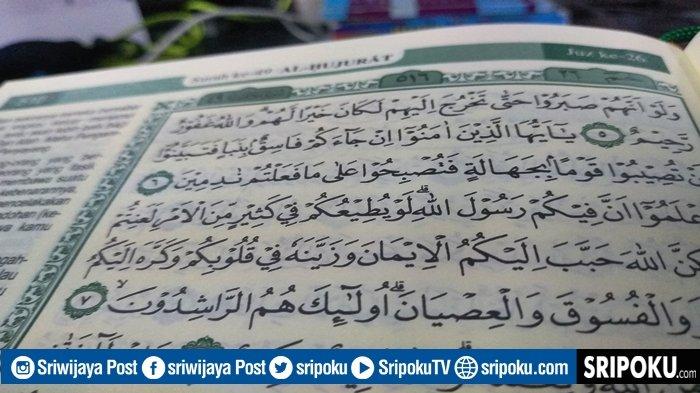 Surah ke-49 AL-HUJURĀT
٥١٦
Juz ke-26
وَلَوْ اَنَّهُمْ صَبَرُوْا حَتّٰى تَخْرُجَ اِلَيْهِمْ لَكَانَ خَيْرًا لَّهُمْ وَاللّٰهُ غَفُوْرٌ
رَّحِيْمٌ ٥ يٰٓاَيُّهَا الَّذِيْنَ اٰمَنُوْٓا اِنْ جَاۤءَكُمْ فَاسِقٌۢ بِنَبَاٍ فَتَبَيَّنُوْٓا
تُصِيْبُوْا قَوْمًاۢ بِجَهَالَةٍ فَتُصْبِحُوْا عَلٰى مَا فَعَلْتُمْ نٰدِمِيْنَ ٦
عْلَمُوْٓا اَنَّ فِيْكُمْ رَسُوْلَ اللّٰهِ ۗ لَوْ يُطِيْعُكُمْ فِيْ كَثِيْرٍ مِّنَ الْاَمْرِ لَعَنِتُّمْ
كِنَّ اللّٰهَ حَبَّبَ اِلَيْكُمُ الْاِيْمَانَ وَزَيَّنَهٗ فِيْ قُلُوْبِكُمْ وَكَرَّهَ اِلَيْكُمُ
وَالْفُسُوْقَ وَالْعِصْيَانَ ۗ اُولٰۤىِٕكَ هُمُ الرَّاشِدُوْنَ ۙ ٧
Sriwijaya Post sriwijaya Post sripoku SripokuTV sripoku.com SRIPOKU.com